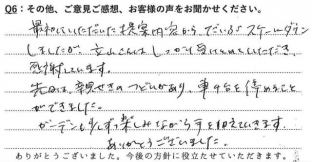 Q6:その他、ご意見ご感想、お客様の声をお聞かせください。
最初していただいた提案内容から、だいぶスケールダウン
しましたが、立山さんは しっかり受けとめていただき、
感謝しています。
先日は、親せきのつどいがあり、車4台を停めること
ができました。
ガーデンも少しずつ楽しみながら手を加えていきます。
ありがとうございました。
ありがとうございました。今後の方針に役立たせていただきます。